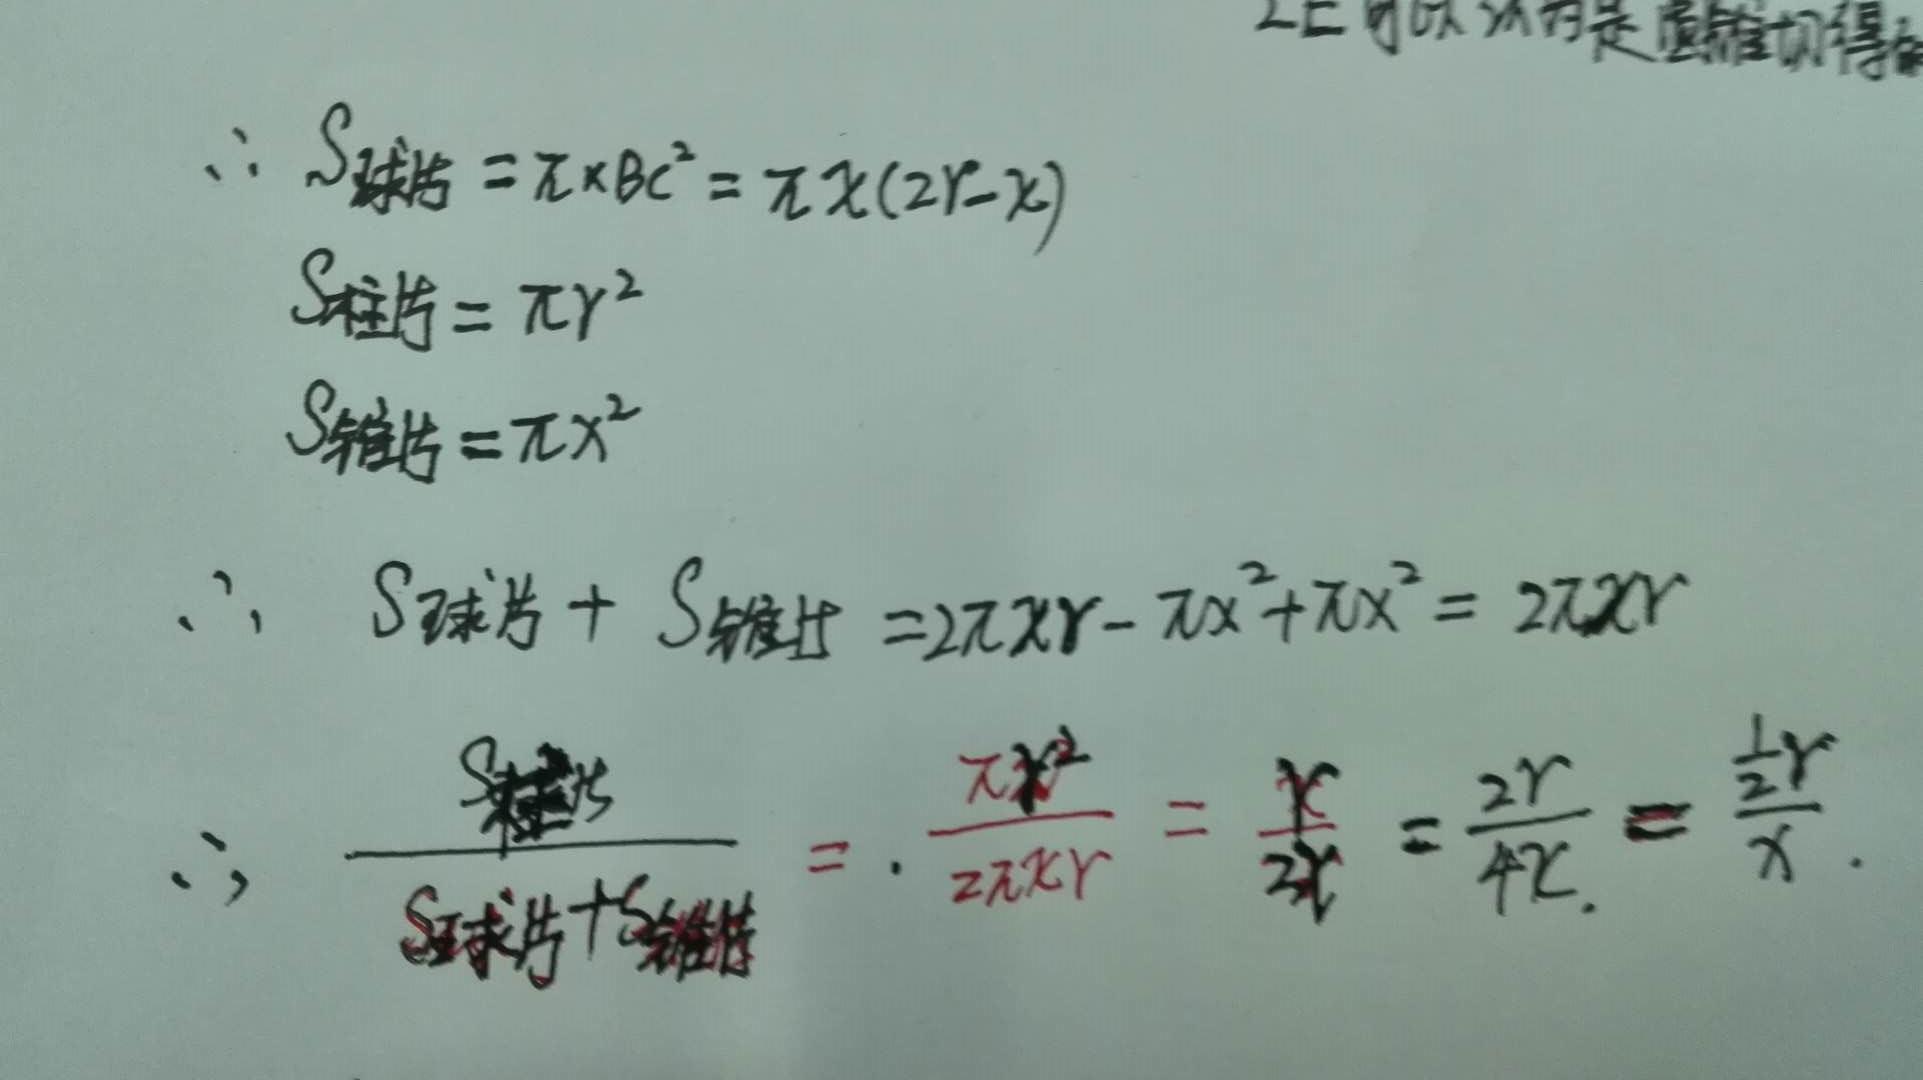 可以认为是圆锥切得的
∴ S球片 = π×BC² = πx(2r-x)
S柱片 = πr²
S锥片 = πx²
∴ S球片 + S锥片 = 2πxr - πx² + πx² = 2πxr
∴ S柱片 / (S球片+S锥片) = πr² / 2πxr = r / 2x = 2r / 4x = ½r / x.